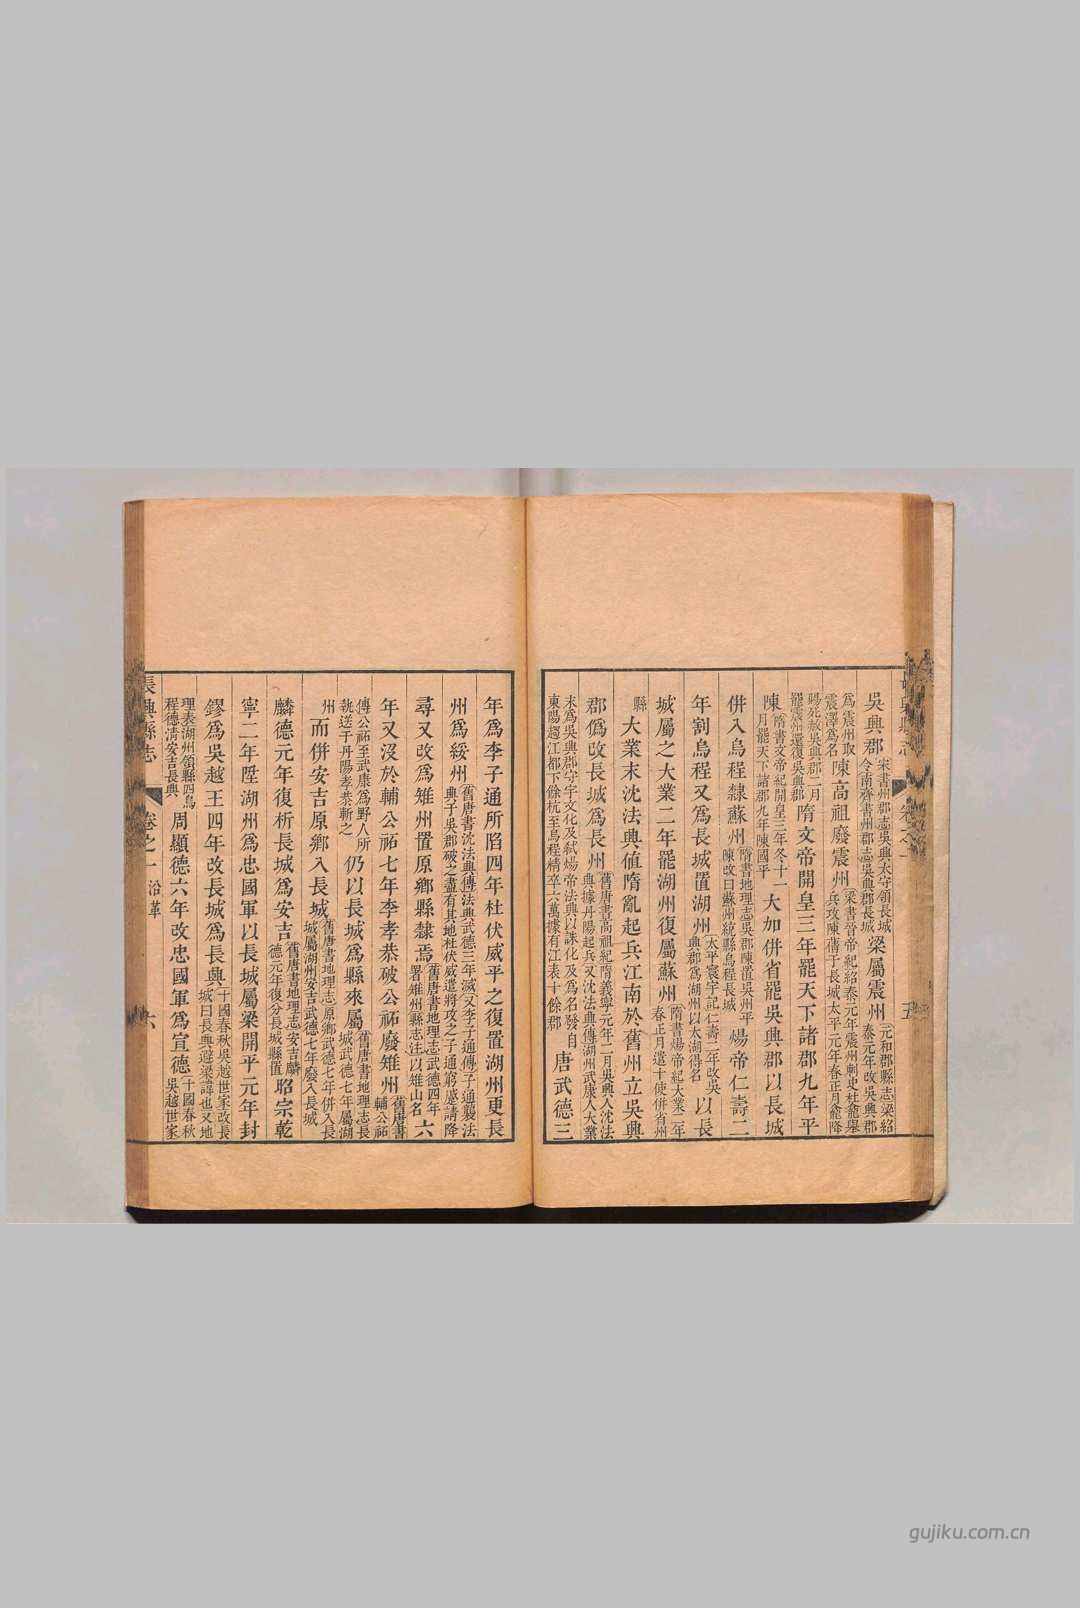 吳興郡宋書州郡志吳興太守領長城令南齊書州郡志吳興郡長城梁屬震州元和郡縣志梁紹泰元年改吳興郡
為震州取震澤為名陳高祖廢震州梁書晉帝紀紹泰元年震州刺史杜龕舉兵攻陳蒨于長城太平元年春正月龕降
賜死赦吳興郡二月罷震州還復吳興郡隋文帝開皇三年罷天下諸郡九年平
陳隋書文帝紀開皇三年冬十一月罷天下諸郡九年陳國平大加併省罷吳興郡以長城
併入烏程隸蘇州隋書地理志吳郡陳置吳州平陳改曰蘇州統縣烏程長城煬帝仁壽二
年割烏程又為長城置湖州太平寰宇記仁壽二年改吳興郡為湖州以太湖得名以長
城屬之大業二年罷湖州復屬蘇州隋書煬帝紀大業二年春正月遣十使併省州
縣大業末沈法興值隋亂起兵江南於舊州立吳興
郡僞改長城為長州舊唐書高祖紀隋義寧元年二月吳興人沈法興據丹陽起兵又沈法興傳湖州武康人大業
末為吳興郡守宇文化及弒煬帝法興以誅化及為名發自東陽趨江都下餘杭至烏程精卒六萬據有江表十餘郡唐武德三
年為李子通所陷四年杜伏威平之復置湖州更長
州為綏州舊唐書沈法興傳法興武德三年滅又李子通傳子通襲法興于吳郡破之盡有其地杜伏威遣將攻之子通窮蹙請降
尋又改為雉州置原鄉縣隸焉舊唐書地理志武德四年署雉州縣志注以雉山名六
年又沒於輔公祏七年李孝恭破公祏廢雉州舊唐書輔公祏
傳公祏至武康為野人所執送于丹陽孝恭斬之仍以長城為縣來屬舊唐書地理志長城武德七年屬湖
州而併安吉原鄉入長城舊唐書地理志原鄉武德七年併入長城屬湖州安吉武德七年廢入長城
麟德元年復析長城為安吉舊唐書地理志安吉麟德元年復分長城縣置昭宗乾
寧二年陞湖州為忠國軍以長城屬梁開平元年封
鏐為吳越王四年改長城為長興十國春秋吳越世家改長城曰長興避梁諱也又地
理表湖州領縣四烏程德清安吉長興周顯德六年改忠國軍為宣德十國春秋吳越世家
長興縣志 卷之一 沿革 六
gujiku.com.cn